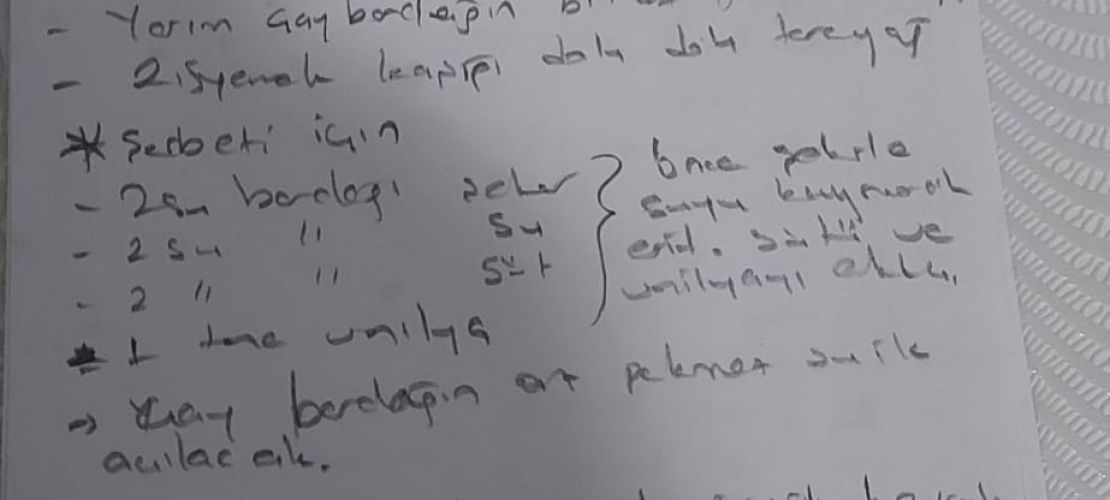 - Yarım çay bardağın
- 2. yemek kaşığı dolu dolu tereyağ
* Şerbeti için
- 2 su bardağı şeker
- 2 su " su
- 2 " " süt
- 1 tane vanilya
önce şekerle
suyu kaynatarak
erit. Sütü ve
vanilyayı ekle.
→ Çay bardağın az pekmez su ile
açılacak.